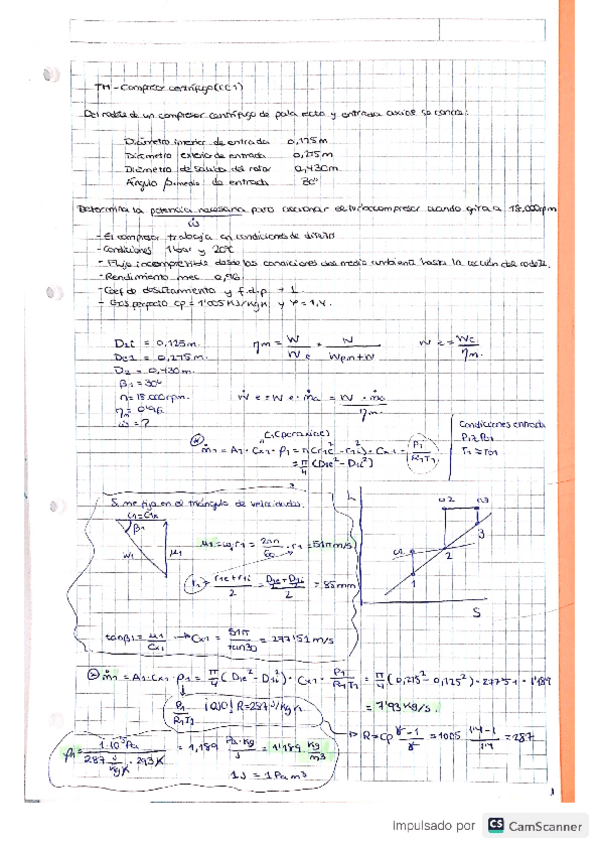 TM - Compresor centrífugo (CC1)
Del rodete de un compresor centrífugo de pala recta y entrada axial se conoce:
Diámetro interior de entrada 0,175m
Diámetro exterior de entrada 0,275m
Diámetro de salida del rotor 0,430m
Ángulo β medio de entrada 30°
Determina la potencia necesaria para accionar el turbocompresor cuando gira a 18.000rpm
ẇ
- El compresor trabaja en condiciones de diseño
- Condiciones 1 bar y 20°C
- Flujo incompresible desde las condiciones del medio ambiente hasta la sección del rodete.
- Rendimiento mec 0,96
- Coef de deslizamiento y f.d.p = 1.
- Gas perfecto cp = 1'005 KJ/kgK y γ = 1,4.
D1i = 0,125m.
De1 = 0,275m.
D2 = 0,430m.
β1 = 30°
n = 18.000rpm.
ηm = 0'96
ẇ = ?
ηm = W/We = W/(Wpm+W)
We = We/ηm.
Ẇe = We·ṁa = W·ṁa/ηm.
Condiciones entrada
P1≈P01
T1≈T01
C1 (pera axial)
ṁ1 = A1·Cx1·ρ1 = π(r1e²-r1i²)·Cx1·P1/R1T1
= π/4 (D1e²-D1i²)
Si me fijo en el triángulo de velocidades.
C1=C1x
β1
W1
μ1
μ1 = ω·r1 = 2πn/60 · r1 = 51π m/s
r1 → (r1e+r1i)/2 = (D1e+D1i)/2 = 85mm
tanβ1 = μ1/Cx1 → Cx1 = 51π/tan30 = 277'51 m/s
02
03
3
2
1
S
ṁ1 = A1·Cx1·ρ1 = π/4 (D1e²-D1i²)·Cx1·P1/R1T1 = π/4 (0,215²-0,125²)·277'51·1'189
= 7'93 kg/s.
P1/R1T1
¡OJO! R=287 J/kgK
→ R = cp (γ-1)/γ = 1005 (1'4-1)/1'4 = 287
ρ1 = 1·10⁵Pa / (287 J/kgK · 293K) = 1,189 Pa·kg/J = 1'189 kg/m3
1J = 1Pa m³
1
Impulsado por CS CamScanner